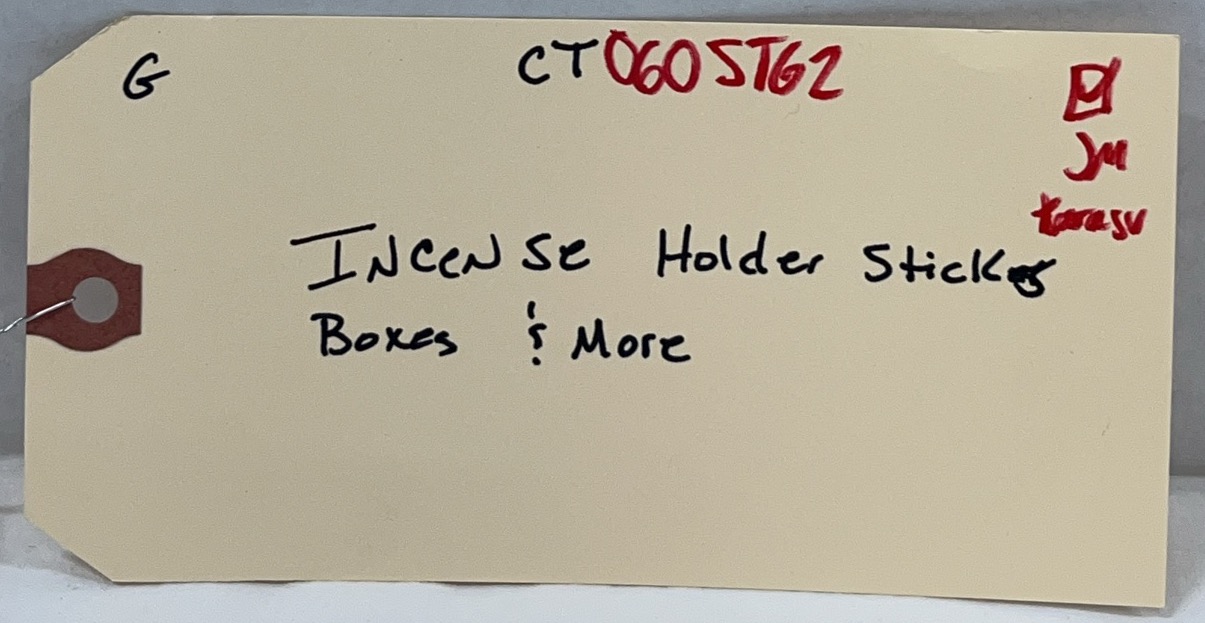 G CT0605TG2
JM
INCENSE Holder Sticks
Boxes & More